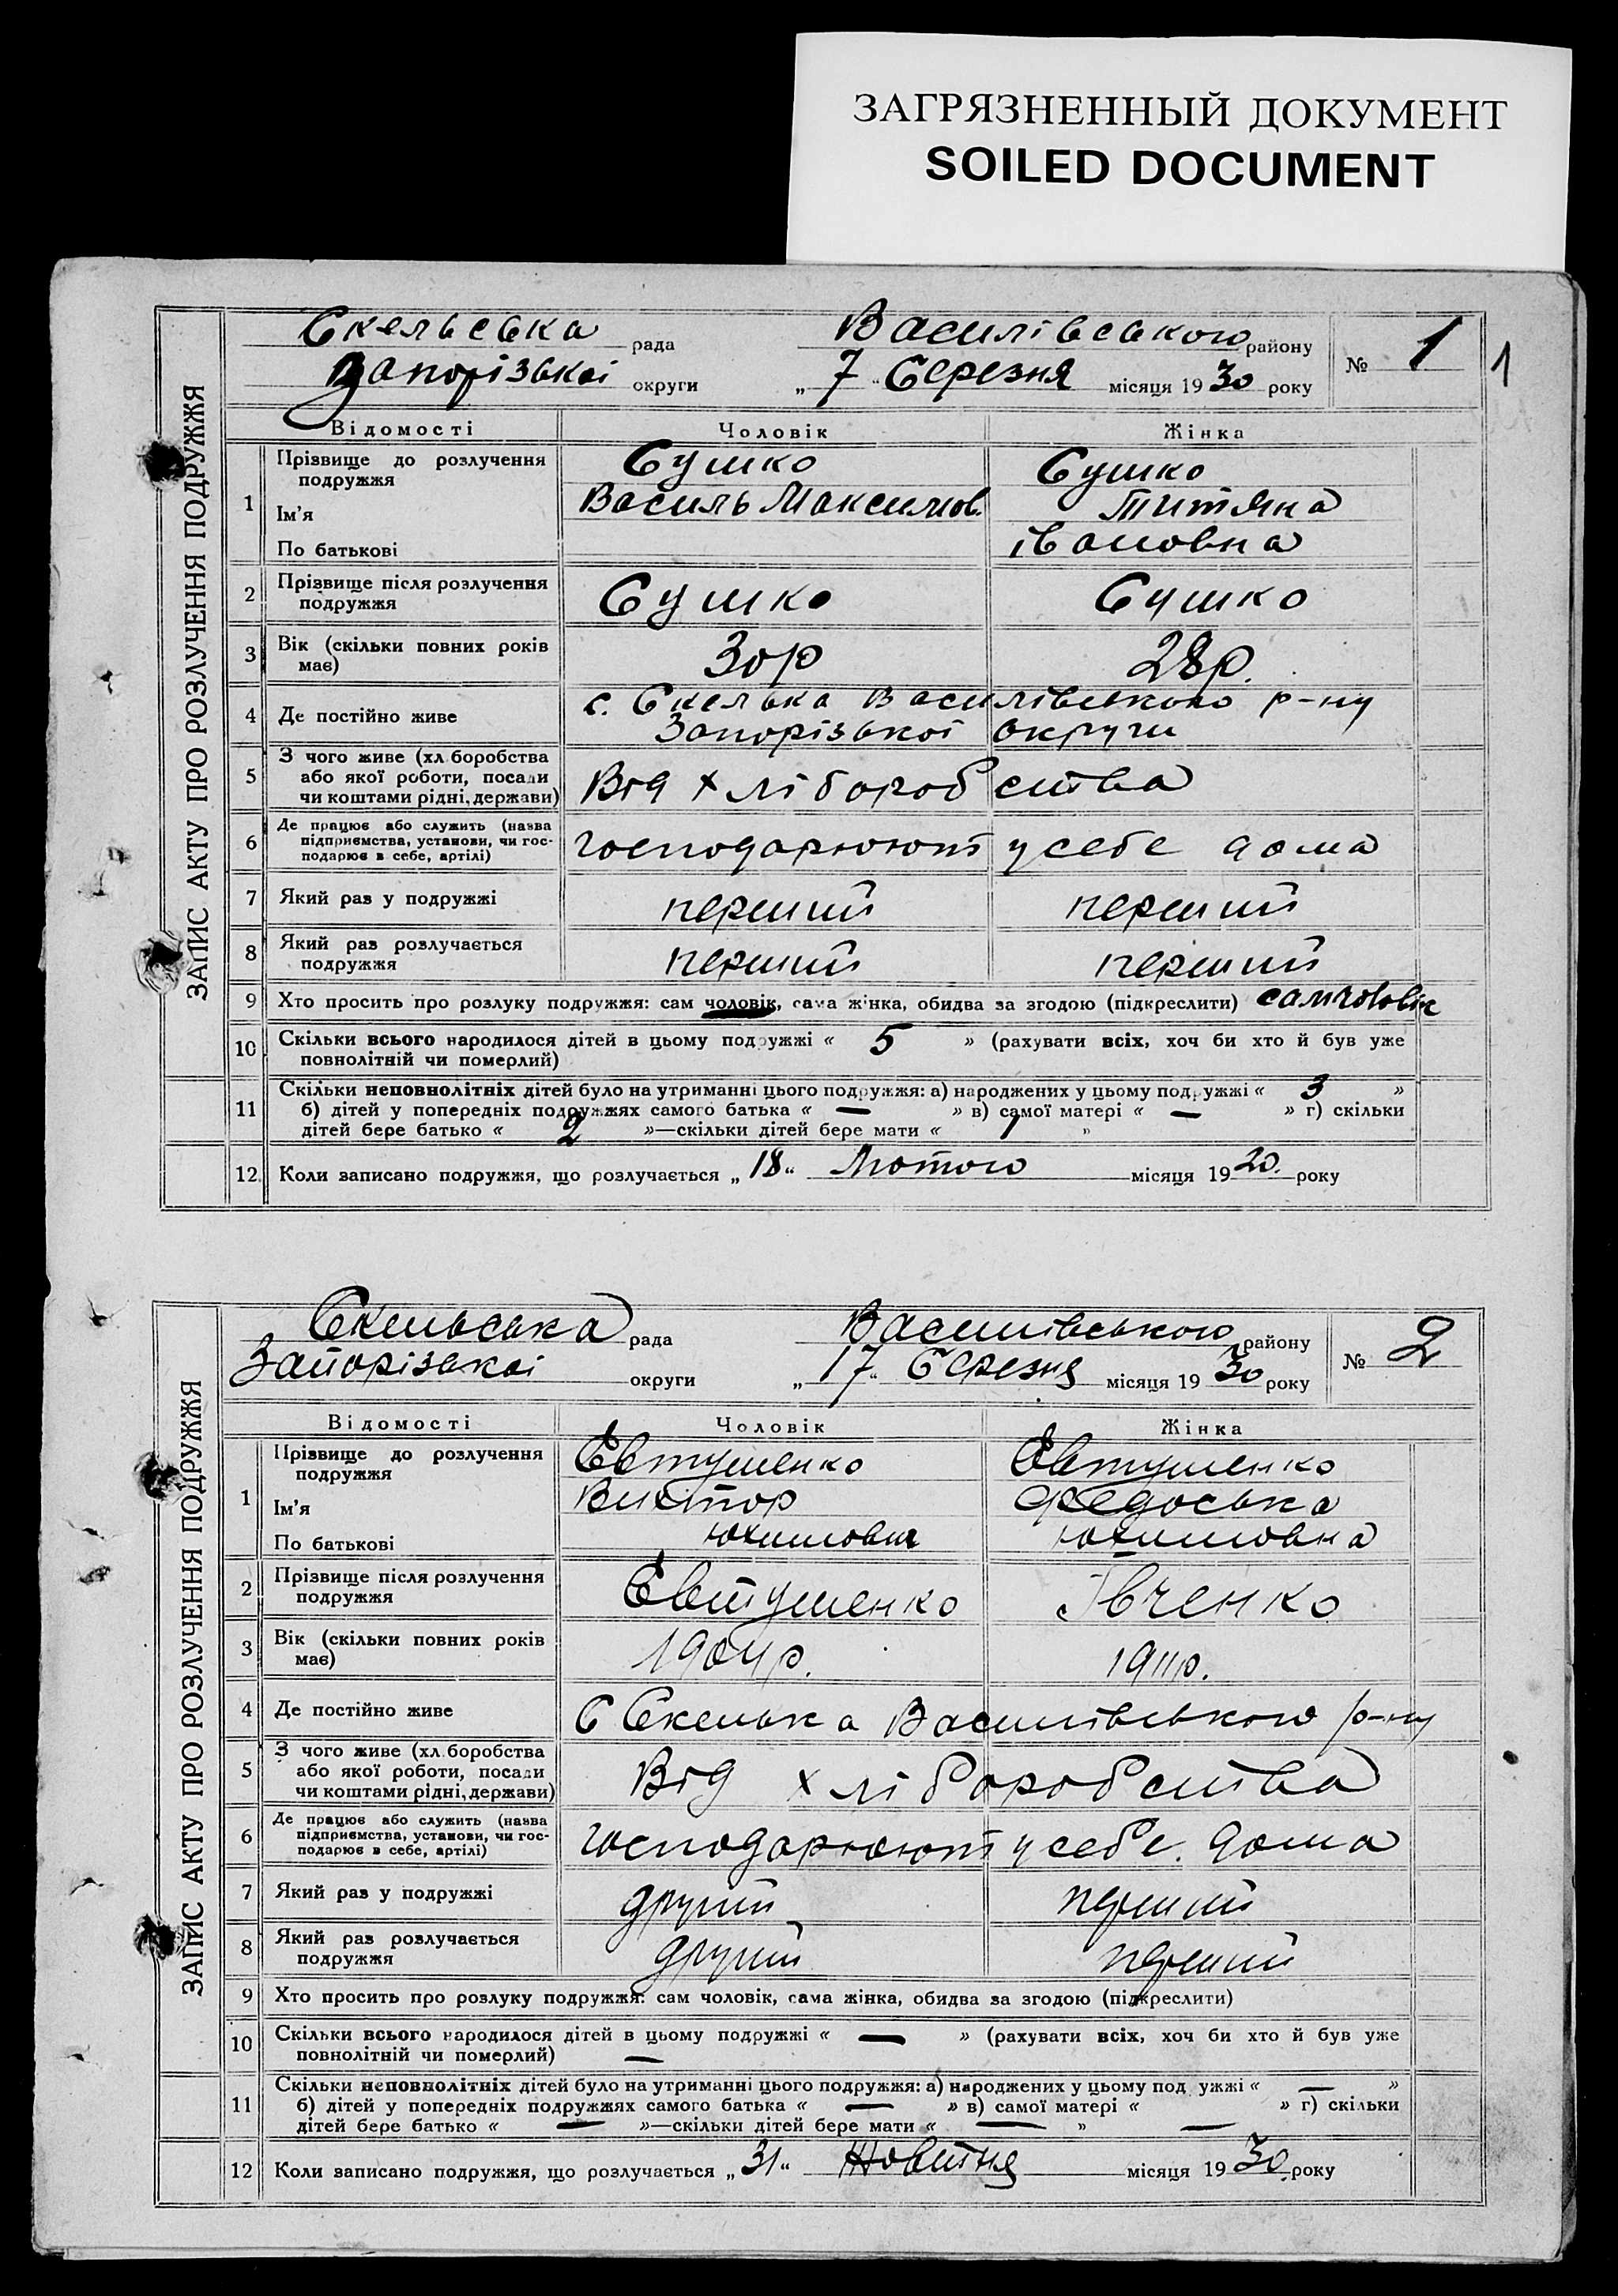 ЗАГРЯЗНЕННЫЙ ДОКУМЕНТ
SOILED DOCUMENT
ЗАПИС АКТУ ПРО РОЗЛУЧЕННЯ ПОДРУЖЖЯ
Скельська рада Василівського району № 1 1
Запорізькоі округи „ 7 “ Березня місяця 19 30 року
Відомості Чоловік Жінка
1 Прізвище до розлучення подружжя Сушко Сушко
Ім'я Василь Максимов. Титяна
По батькові івановна
2 Прізвище після розлучення подружжя Сушко Сушко
3 Вік (скільки повних років має) 30р 28р.
4 Де постійно живе с. Скелька Василівського р-ну
Запорізькоі округи
5 З чого живе (хл боробства або якої роботи, посади чи коштами рідні, держави) Від хліборобства
6 Де працює або служить (назва підприємства, установи, чи господарює в себе, артілі) господарюют у себе дома
7 Який раз у подружжі перший перший
8 Який раз розлучається подружжя перший перший
9 Хто просить про розлуку подружжя: сам чоловік, сама жінка, обидва за згодою (підкреслити) сам чоловік
10 Скільки всього народилося дітей в цьому подружжі « 5 » (рахувати всіх, хоч би хто й був уже
повнолітній чи померлий)
11 Скільки неповнолітніх дітей було на утриманні цього подружжя: а) народжених у цьому подружжі « 3 »
б) дітей у попередніх подружжях самого батька « — » в) самої матері « — » г) скільки
дітей бере батько « 2 »—скільки дітей бере мати « 1 »
12 Коли записано подружжя, що розлучається „ 18 “ Лютого місяця 19 20. року
ЗАПИС АКТУ ПРО РОЗЛУЧЕННЯ ПОДРУЖЖЯ
Скельська рада Василівського району № 2
Запорізькоі округи „ 17 “ Березня місяця 19 30 року
Відомості Чоловік Жінка
1 Прізвище до розлучення подружжя Євтушенко Євтушенко
Ім'я Виктор Федоська
По батькові Юхимовна
2 Прізвище після розлучення подружжя Євтушенко Івченко
3 Вік (скільки повних років має) 1904р. 1911р.
4 Де постійно живе С Скелька Василівського р-ну
5 З чого живе (хл боробства або якої роботи, посади чи коштами рідні, держави) Від хліборобства
6 Де працює або служить (назва підприємства, установи, чи господарює в себе, артілі) господарюют у себе. дома
7 Який раз у подружжі другий перший
8 Який раз розлучається подружжя другий перший
9 Хто просить про розлуку подружжя: сам чоловік, сама жінка, обидва за згодою (підкреслити)
10 Скільки всього народилося дітей в цьому подружжі « — » (рахувати всіх, хоч би хто й був уже
повнолітній чи померлий) —
11 Скільки неповнолітніх дітей було на утриманні цього подружжя: а) народжених у цьому под ужжі « — »
б) дітей у попередніх подружжях самого батька « — » в) самої матері « — » г) скільки
дітей бере батько « — »—скільки дітей бере мати « — » —
12 Коли записано подружжя, що розлучається „ 31 “ Жовтня місяця 19 30. року